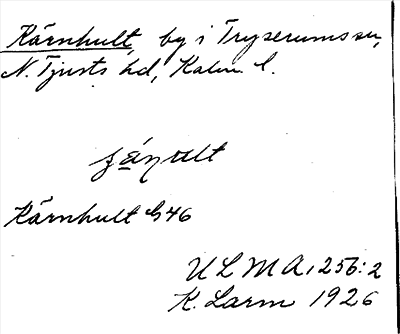 Kärnhult, by i Tryserums sn,
N. Tjusts hd, Kalm. l.
Kärnhult G46
ULMA, 256:2
K. Larm 1926